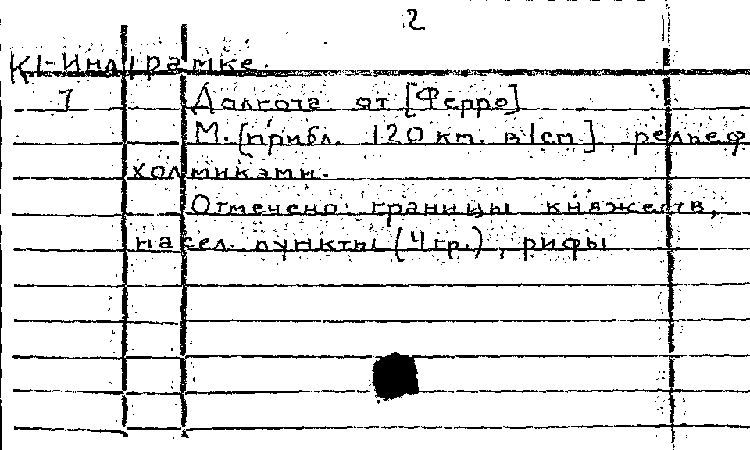 2
К1-Инд
рамке.
7
Долгота от [Ферро]
М. [прибл. 120 км. в 1 см], рельеф
холмиками.
Отмечено: границы княжеств,
насел. пункты (4 гр.), рифы